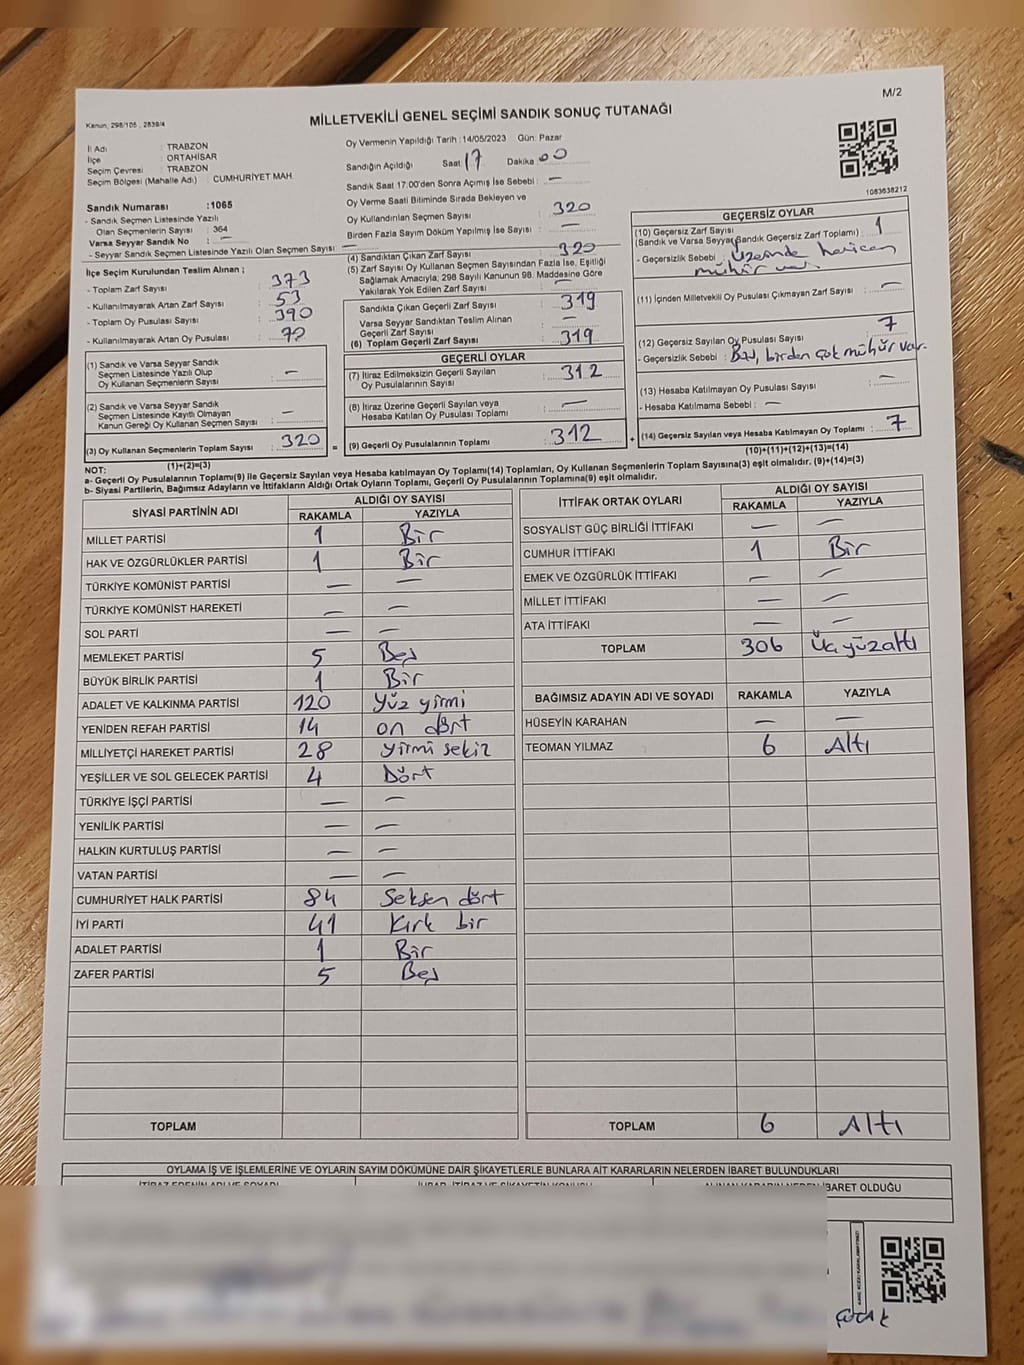 M/2
MİLLETVEKİLİ GENEL SEÇİMİ SANDIK SONUÇ TUTANAĞI
Kanun, 298/105 , 2839/4
İl Adı : TRABZON
İlçe : ORTAHİSAR
Seçim Çevresi : TRABZON
Seçim Bölgesi (Mahalle Adı) : CUMHURİYET MAH.
Sandık Numarası :1065
- Sandık Seçmen Listesinde Yazılı
Olan Seçmenlerin Sayısı : 364
Varsa Seyyar Sandık No : —
- Seyyar Sandık Seçmen Listesinde Yazılı Olan Seçmen Sayısı : —
Oy Vermenin Yapıldığı Tarih :14/05/2023 Gün: Pazar
Sandığın Açıldığı Saat 17 Dakika 00
Sandık Saat 17.00'den Sonra Açımış İse Sebebi : —
Oy Verme Saati Bitiminde Sırada Bekleyen ve
Oy Kullandırılan Seçmen Sayısı : 320
Birden Fazla Sayım Döküm Yapılmış İse Sayısı : —
1083638212
İlçe Seçim Kurulundan Teslim Alınan ;
- Toplam Zarf Sayısı : 373
- Kullanılmayarak Artan Zarf Sayısı : 53
- Toplam Oy Pusulası Sayısı : 390
- Kullanılmayarak Artan Oy Pusulası : 70
(1) Sandık ve Varsa Seyyar Sandık
Seçmen Listesinde Yazılı Olup
Oy Kullanan Seçmenlerin Sayısı : —
(2) Sandık ve Varsa Seyyar Sandık
Seçmen Listesinde Kayıtlı Olmayan
Kanun Gereği Oy Kullanan Seçmen Sayısı : —
(3) Oy Kullanan Seçmenlerin Toplam Sayısı : 320 =
(1)+(2)=(3)
(4) Sandıktan Çıkan Zarf Sayısı : 320
(5) Zarf Sayısı Oy Kullanan Seçmen Sayısından Fazla İse, Eşitliği
Sağlamak Amacıyla, 298 Sayılı Kanunun 98. Maddesine Göre
Yakılarak Yok Edilen Zarf Sayısı : —
Sandıkta Çıkan Geçerli Zarf Sayısı : 319
Varsa Seyyar Sandıktan Teslim Alınan
Geçerli Zarf Sayısı : —
(6) Toplam Geçerli Zarf Sayısı : 319
GEÇERLİ OYLAR
(7) İtiraz Edilmeksizin Geçerli Sayılan
Oy Pusulalarının Sayısı : 312
(8) İtiraz Üzerine Geçerli Sayılan veya
Hesaba Katılan Oy Pusulası Toplamı : —
(9) Geçerli Oy Pusulalarının Toplamı : 312 +
GEÇERSİZ OYLAR
(10) Geçersiz Zarf Sayısı
(Sandık ve Varsa Seyyar Sandık Geçersiz Zarf Toplamı) : 1
- Geçersizlik Sebebi : Üzerinde haricen
mühür var.
(11) İçinden Milletvekili Oy Pusulası Çıkmayan Zarf Sayısı : —
(12) Geçersiz Sayılan Oy Pusulası Sayısı : 7
- Geçersizlik Sebebi : Boş, birden çok mühür var.
(13) Hesaba Katılmayan Oy Pusulası Sayısı : —
- Hesaba Katılmama Sebebi : —
(14) Geçersiz Sayılan veya Hesaba Katılmayan Oy Toplamı : 7
(10)+(11)+(12)+(13)=(14)
NOT:
a- Geçerli Oy Pusulalarının Toplamı(9) ile Geçersiz Sayılan veya Hesaba katılmayan Oy Toplamı(14) Toplamları, Oy Kullanan Seçmenlerin Toplam Sayısına(3) eşit olmalıdır. (9)+(14)=(3)
b- Siyasi Partilerin, Bağımsız Adayların ve İttifakların Aldığı Ortak Oyların Toplamı, Geçerli Oy Pusulalarının Toplamına(9) eşit olmalıdır.
SİYASİ PARTİNİN ADI ALDIĞI OY SAYISI
RAKAMLA YAZIYLA
MİLLET PARTİSİ 1 Bir
HAK VE ÖZGÜRLÜKLER PARTİSİ 1 Bir
TÜRKİYE KOMÜNİST PARTİSİ — —
TÜRKİYE KOMÜNİST HAREKETİ — —
SOL PARTİ — —
MEMLEKET PARTİSİ 5 Beş
BÜYÜK BİRLİK PARTİSİ 1 Bir
ADALET VE KALKINMA PARTİSİ 120 Yüz yirmi
YENİDEN REFAH PARTİSİ 14 on dört
MİLLİYETÇİ HAREKET PARTİSİ 28 yirmi sekiz
YEŞİLLER VE SOL GELECEK PARTİSİ 4 Dört
TÜRKİYE İŞÇİ PARTİSİ — —
YENİLİK PARTİSİ — —
HALKIN KURTULUŞ PARTİSİ — —
VATAN PARTİSİ — —
CUMHURİYET HALK PARTİSİ 84 Seksen dört
İYİ PARTİ 41 Kırk bir
ADALET PARTİSİ 1 Bir
ZAFER PARTİSİ 5 Beş
TOPLAM
İTTİFAK ORTAK OYLARI ALDIĞI OY SAYISI
RAKAMLA YAZIYLA
SOSYALİST GÜÇ BİRLİĞİ İTTİFAKI — —
CUMHUR İTTİFAKI 1 Bir
EMEK VE ÖZGÜRLÜK İTTİFAKI — —
MİLLET İTTİFAKI — —
ATA İTTİFAKI — —
TOPLAM 306 Üç yüz altı
BAĞIMSIZ ADAYIN ADI VE SOYADI RAKAMLA YAZIYLA
HÜSEYİN KARAHAN — —
TEOMAN YILMAZ 6 Altı
TOPLAM 6 Altı
OYLAMA İŞ VE İŞLEMLERİNE VE OYLARIN SAYIM DÖKÜMÜNE DAİR ŞİKAYETLERLE BUNLARA AİT KARARLARIN NELERDEN İBARET BULUNDUKLARI
İTİRAZ EDENİN ADI VE SOYADI
İBARET OLDUĞU